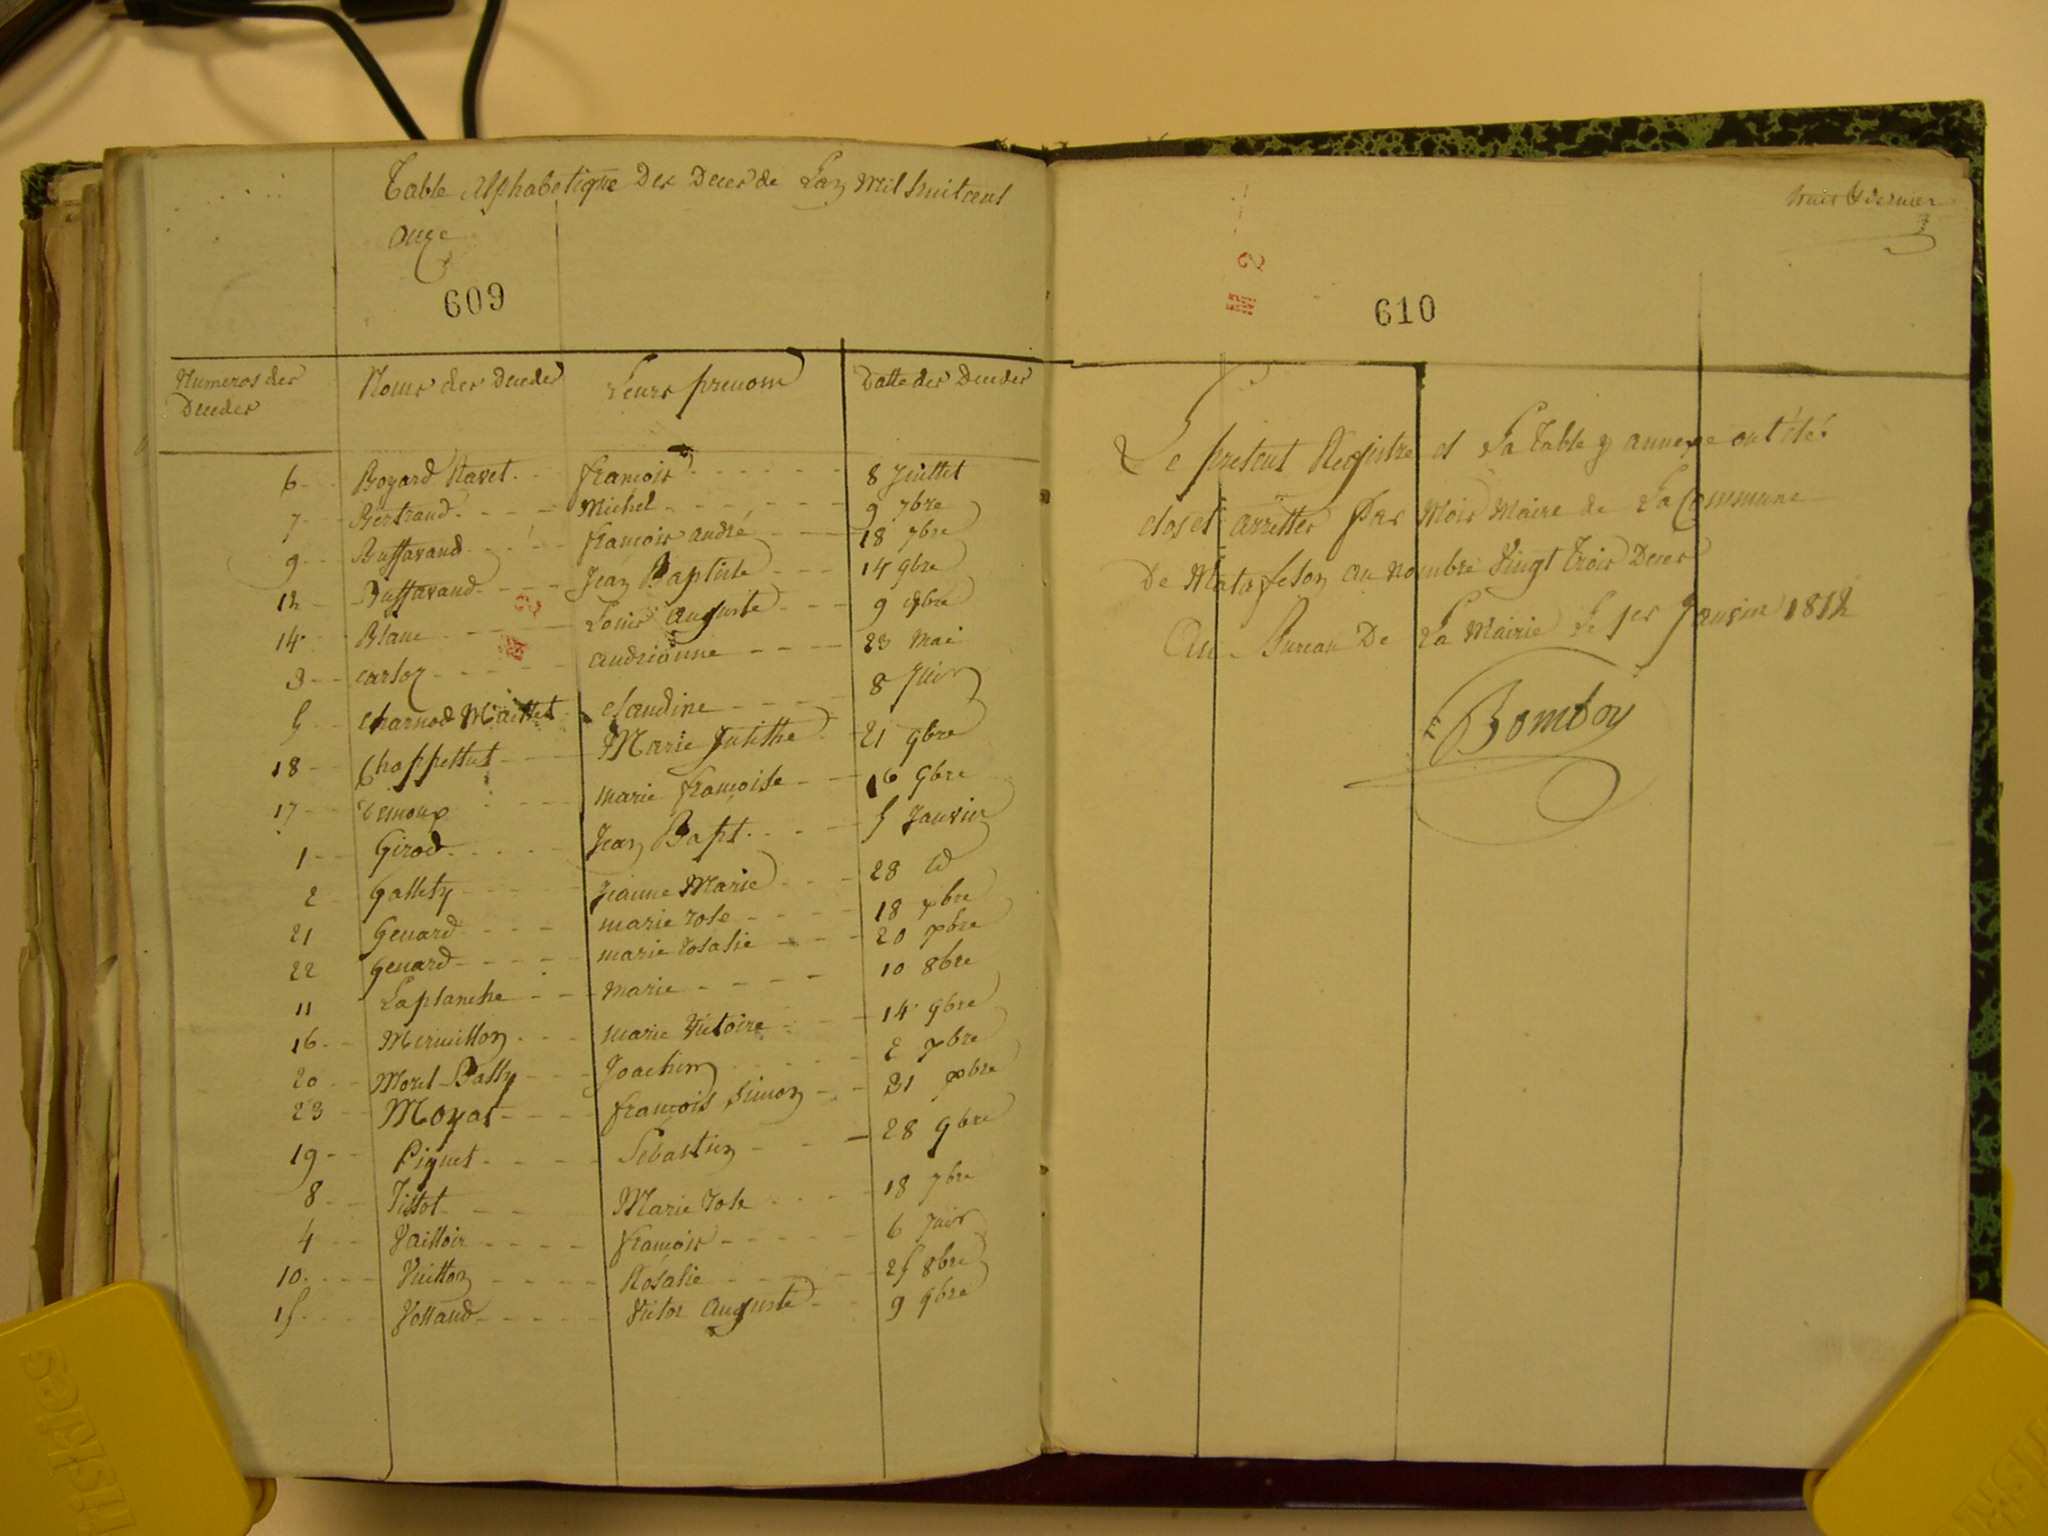 Table Alphabetique Des Deces de Lan Mil huit cent
Onze
609
Numeros des Decedes Noms des Decedes Leurs prenoms Datte des Decedes
6 Bogard Navet francois 8 Juillet
7 Bertrand Michel 9 7bre
9 Buffavand francois andré 18 7bre
12 Buffavand Jean Baptiste 14 9bre
14 Blanc Louis Auguste 9 9bre
3 carlon andrianne 23 mai
5 Charnod Maillet claudine 8 Juin
18 Chappellut Marie Julithe 21 9bre
17 marie francoise 16 9bre
1 Girod Jean Bapt. 5 Janvier
2 Gallety Jeanne Marie 28 id
21 Genard marie rose 18 xbre
22 Genard marie rosalie 20 xbre
11 Laplanche marie 10 8bre
16 Mermillon marie Victoire 14 9bre
20 Morel Bally Joachim 2 xbre
23 Moyat francois Simon 31 xbre
19 Piquet Sebastien 28 9bre
8 Tissot Marie rose 18 7bre
4 Vailloir francois 6 Juin
10 Vuitton Rosalie 25 8bre
15 Volland Victor Auguste 9 9bre
trois & dernier
3
2
610
Le present Registre et La Table y annexe ont étés
clos et arrettes par Moi Maire de La Commune
De Matafelon au nombre Vingt Trois Deces
Au Bureau De La Mairie Le 1er Janvier 1812
Bomboy